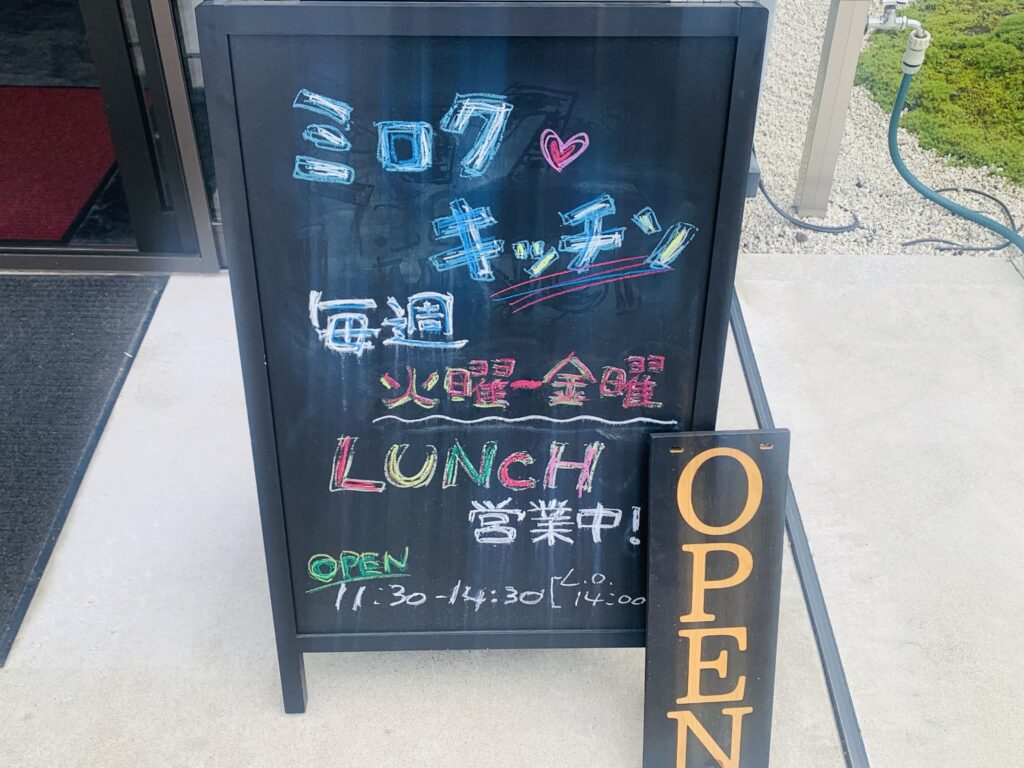 ミロク
キッチン
毎週
火曜ー金曜
LUNCH
営業中!
OPEN
11:30-14:30 [L.O. 14:00
OPEN